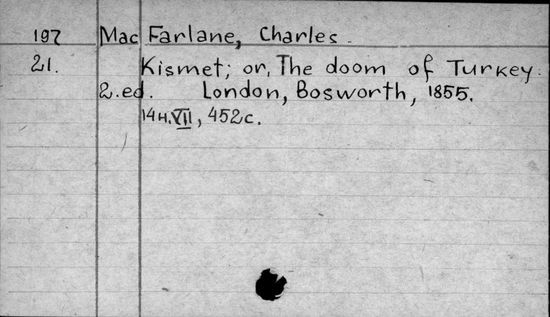 197 Mac Farlane, Charles.
21. Kismet; or, The doom of Turkey.
2.ed. London, Bosworth, 1855.
14н.VII, 452с.